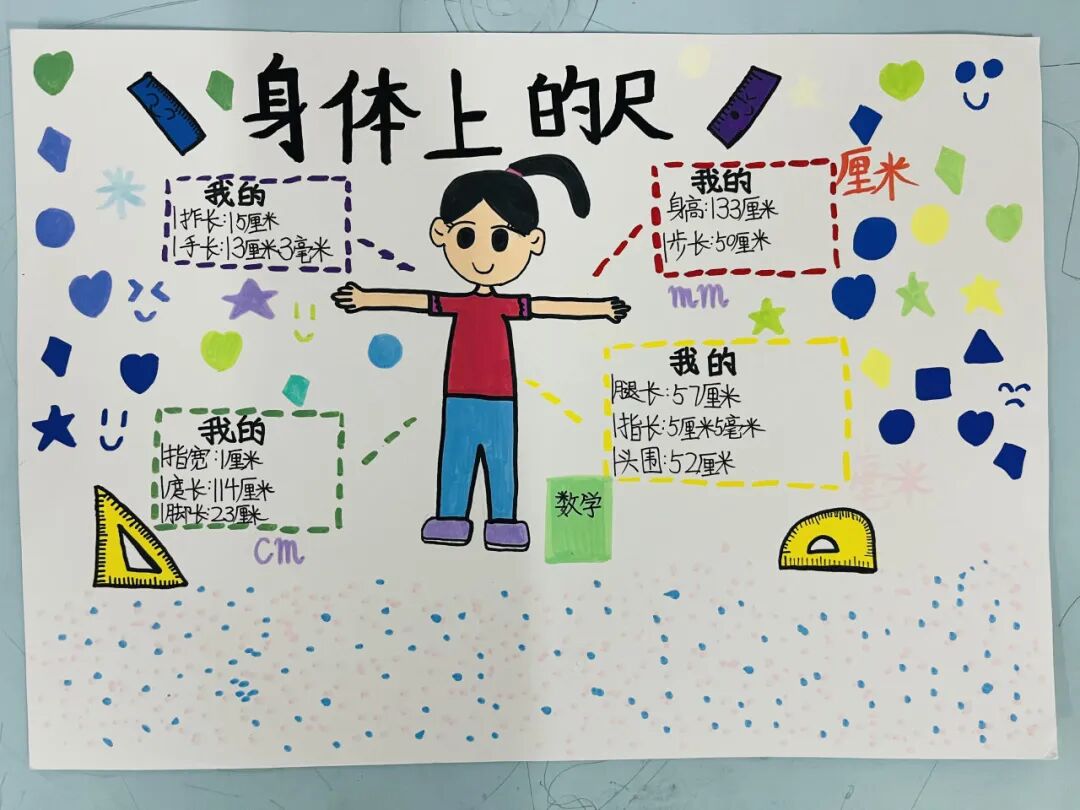 身体上的尺
我的
1拃长:15厘米
1手长:13厘米3毫米
我的
身高:133厘米
1步长:50厘米
厘米
米
mm
我的
1腿长:57厘米
1指长:5厘米5毫米
1头围:52厘米
我的
1指宽:1厘米
1庹长:114厘米
1脚长:23厘米
cm
数学
毫米